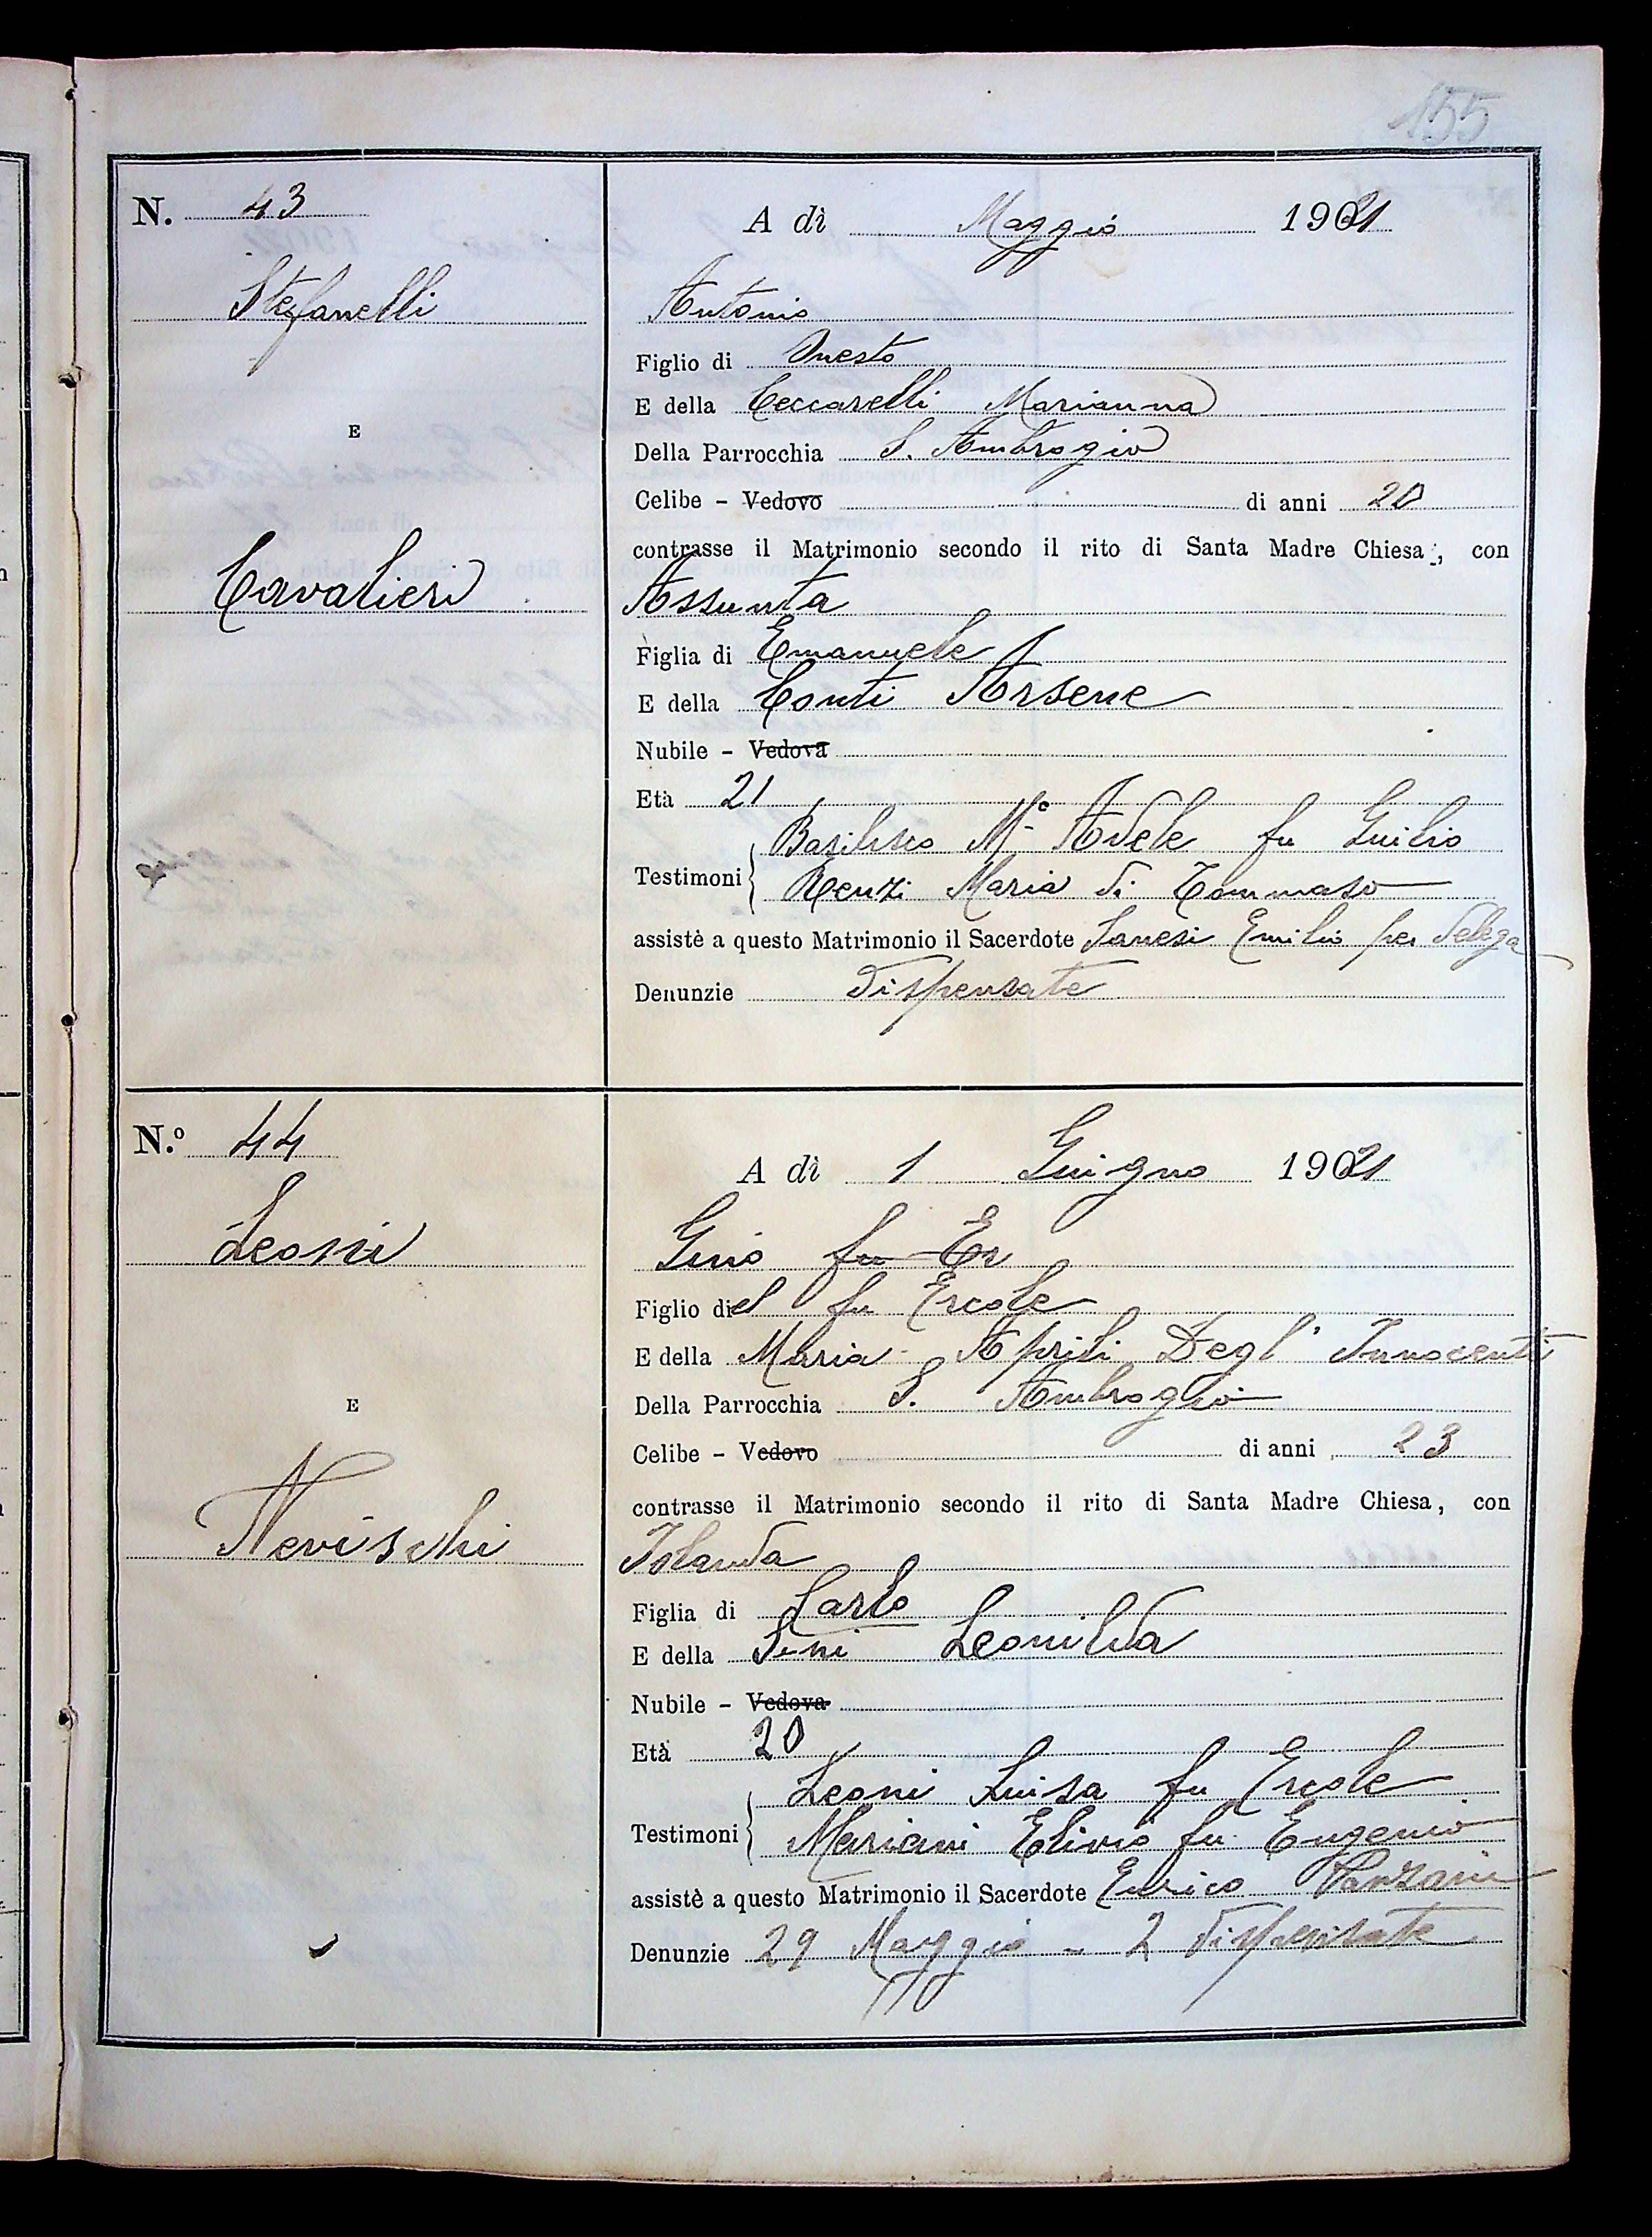 155
N. 43
A dì Maggio 1921
Stefanelli
Antonio
Figlio di Onesto
E della Ceccarelli Marianna
E
Della Parrocchia S. Ambrogio
Celibe - Vedovo di anni 20
contrasse il Matrimonio secondo il rito di Santa Madre Chiesa, con
Cavalieri
Assunta
Figlia di Emanuele
E della Conti Arsene
Nubile - Vedova
Età 21
Basilisco Mª Adele fu Guilio
Testimoni
Renzi Maria di Tommaso
assistè a questo Matrimonio il Sacerdote Sanesi Emilio per delega
Denunzie dispensate
N.º 44
A dì 1 Guigno 1921
Leoni
Gino fu Er
Figlio del fu Ercole
E della Maria Aprili Degl' Innocenti
E
Della Parrocchia S. Ambrogio
Celibe - Vedovo di anni 23
contrasse il Matrimonio secondo il rito di Santa Madre Chiesa, con
Nevischi
Iolanda
Figlia di Carlo
E della Leonilda
Nubile - Vedova
Età 20
Leoni Luisa fu Ercole
Testimoni
Mariani Elivio fu Eugenio
assistè a questo Matrimonio il Sacerdote Enrico
Denunzie 29 Maggio - 2 dispensate